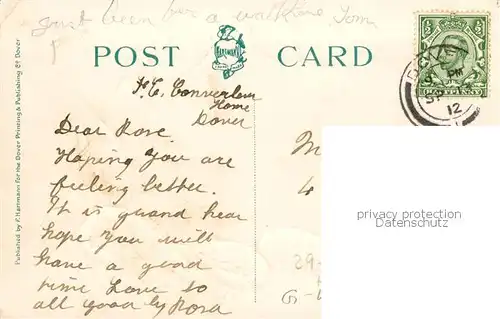 just been for a walk Tom
POST CARD
F. C. Convert
Home
Dover
Dear Rose
Hoping you are
feeling better.
It is grand hear
hope you will
have a good
time Love to
all good by Rosa
M
4
29
G
DOVER
PM
SP
12
privacy protection
Datenschutz
Published by F. Hartmann for the Dover Printing & Publishing Co Dover